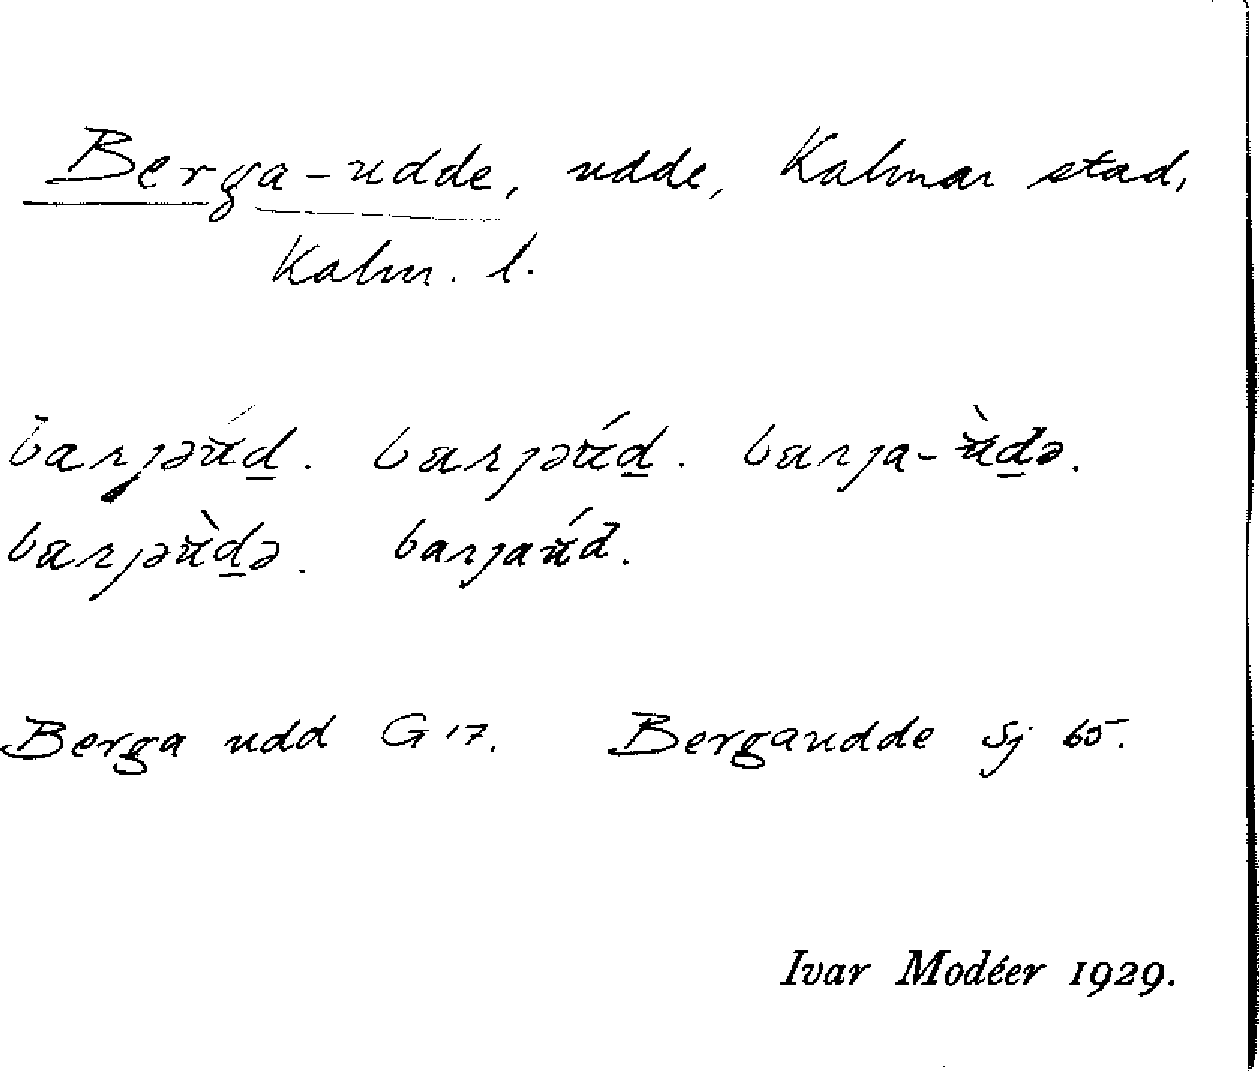 Berga-udde, udde, Kalmar stad,
Kalm. l.
barjəúd. barjəúd. barja-ùdə.
barjəùdə. barjaúd.
Berga udd G 17. Bergaudde Sj 65.
Ivar Modéer 1929.